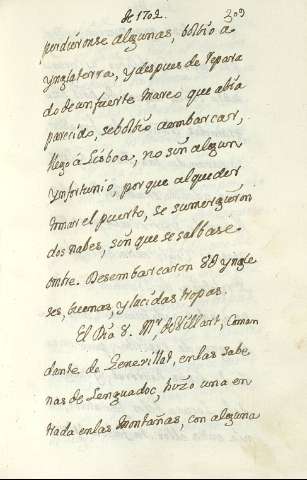 de 1702. 309
perdieronse algunas, bolbio a
yngla terra, y despues de repara
do de un fuerte mareo que abia
parecido, se bolbio a embarcar,
llego a Lisboa, no sin algun
ynfortunio, por que al queder
tomar el puerto, se sumergieron
dos nabes, sin que se salbase
ombre. Desembarcaron 8@ yngle
ses, buenas, y lucidas tropas.
El Dia 8. Mr. de Villart, Coman
dante de Genevillat, en las Sabe
nas de Lenguadoc, hizo una en
trada en las Montañas, con alguna